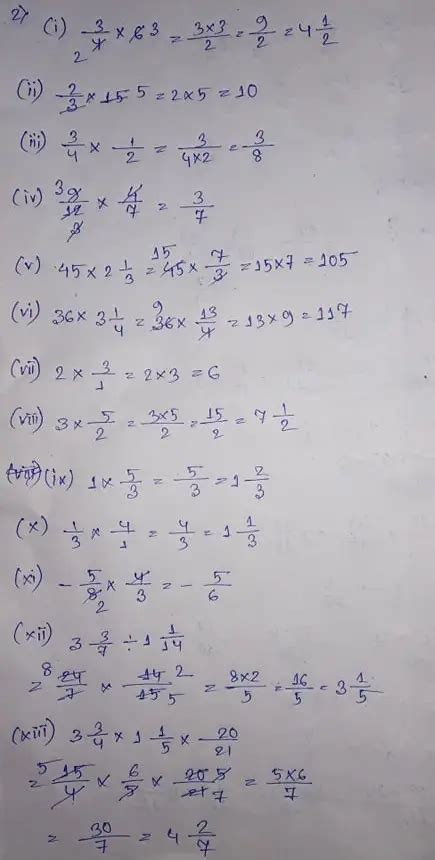 2) (i) 3/4 × 6 3 = 3×3/2 = 9/2 = 4 1/2
2
(ii) 2/3 × 15 5 = 2×5 = 10
(iii) 3/4 × 1/2 = 3/4×2 = 3/8
(iv) 3 9/12 3 × 4/7 = 3/7
(v) 45 × 2 1/3 = 15 45 × 7/3 = 15×7 = 105
(vi) 36 × 3 1/4 = 9 36 × 13/4 = 13×9 = 117
(vii) 2 × 3/1 = 2×3 = 6
(viii) 3 × 5/2 = 3×5/2 = 15/2 = 7 1/2
(viii) (ix) 1 × 5/3 = 5/3 = 1 2/3
(x) 1/3 × 4/1 = 4/3 = 1 1/3
(xi) - 5/8 2 × 4/3 = - 5/6
(xii) 3 3/7 ÷ 1 1/14
= 8 24/7 × 14 2/15 5 = 8×2/5 = 16/5 = 3 1/5
(xiii) 3 3/4 × 1 1/5 × 20/21
= 5 15/4 × 6/5 × 20 5/21 7 = 5×6/7
= 30/7 = 4 2/7